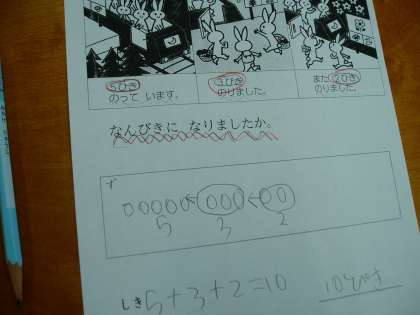 5ひき
のって います。
3びき
のりました。
また 2ひき
のりました。
なんびきに なりましたか。
ず
00000←000←00
5 3 2
しき 5+3+2=10 10ぴき